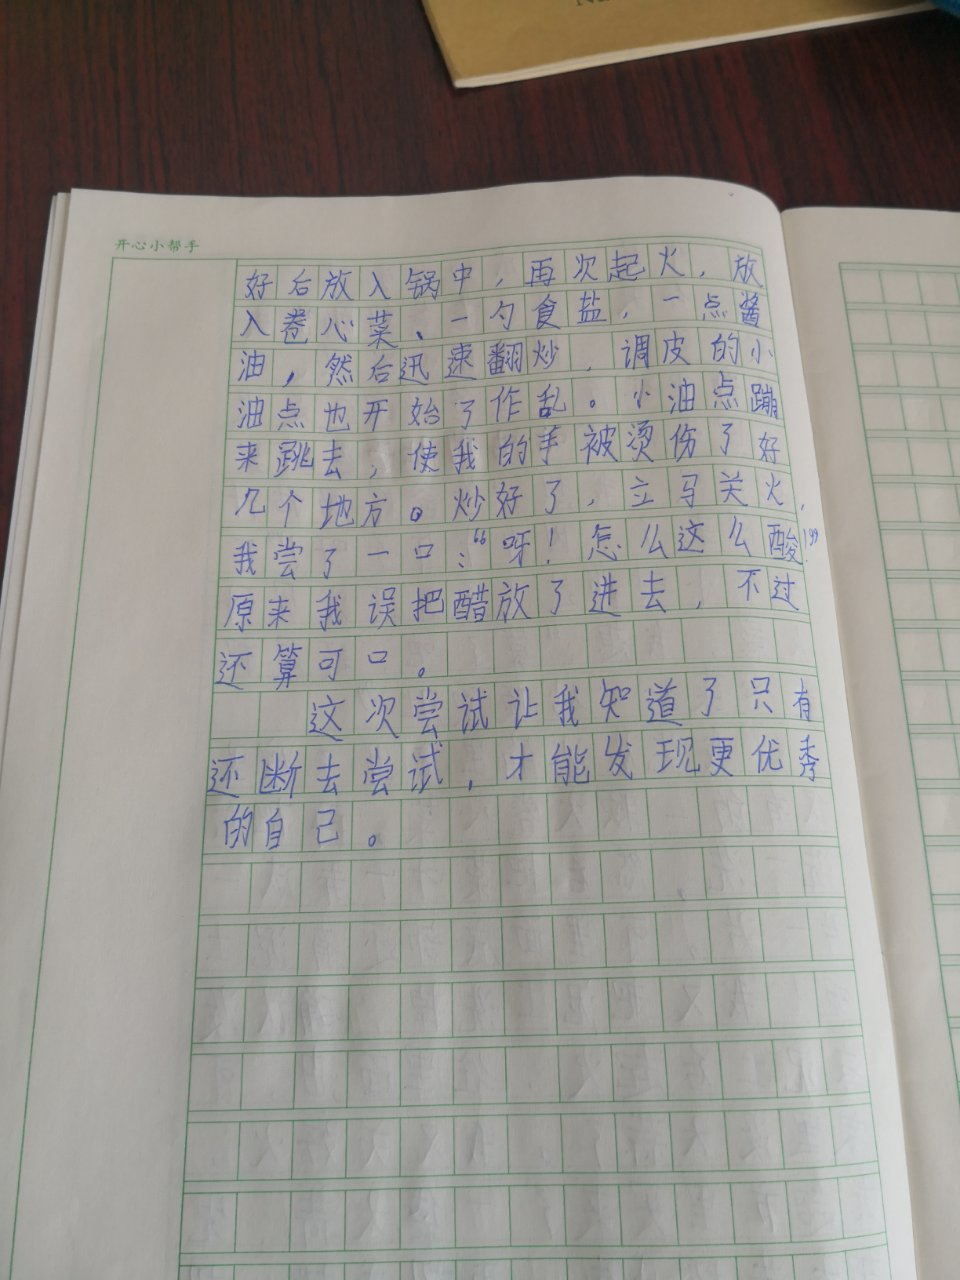 开心小帮手
好后放入锅中，再次起火，放
入卷心菜、一勺食盐，一点酱
油，然后迅速翻炒，调皮的小
油点也开始了作乱。小油点蹦
来跳去，使我的手被烫伤了好
几个地方。炒好了，立马关火，
我尝了一口：“呀！怎么这么酸！”
原来我误把醋放了进去，不过
还算可口。
这次尝试让我知道了只有
还断去尝试，才能发现更优秀
的自己。